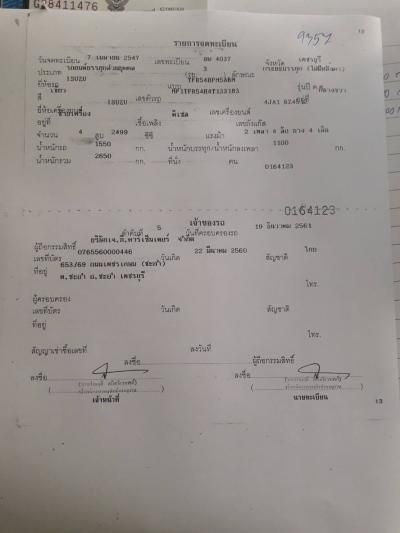 G28411476
12
9957
รายการจดทะเบียน
วันจดทะเบียน 7 เมษายน 2547 เลขทะเบียน 4037 จังหวัด เพชรบุรี
ประเภท รถยนต์บรรทุกส่วนบุคคล (รย. 3 ) ลักษณะ กระบะบรรทุก
ยี่ห้อรถ ISUZU แบบ TFR54HPM5ABR รุ่นปี ค.ศ.
สี เทา เลขตัวรถ MP1TFR54B4T133183
ยี่ห้อเครื่อง ISUZU เลขเครื่องยนต์ 4JA1
อยู่ที่ เชื้อเพลิง ดีเซล เลขถังแก๊ส
จำนวน 4 สูบ 2499 ซีซี แรงม้า 2 เพลา 4 ล้อ ยาง 4 เส้น
น้ำหนักรถ 1550 กก. น้ำหนักบรรทุก/น้ำหนักลงเพลา 1100 กก.
น้ำหนักรวม 2650 กก. ที่นั่ง คน
0164123
0164123
เจ้าของรถ
ลำดับที่ 5 วันที่ครอบครองรถ 19 ธันวาคม 2561
ผู้ถือกรรมสิทธิ์ จำกัด
เลขที่บัตร 0765560000446 วันเกิด 22 มีนาคม 2560 สัญชาติ ไทย
ที่อยู่ 653/69 ถนนเพชรเกษม (ชะอำ)
ต.ชะอำ อ.ชะอำ เพชรบุรี โทร.
ผู้ครอบครอง
เลขที่บัตร วันเกิด สัญชาติ
ที่อยู่
โทร.
สัญญาเช่าซื้อเลขที่ ลงวันที่
ลงชื่อ ผู้ถือกรรมสิทธิ์
ลงชื่อ ลงชื่อ
เจ้าหน้าที่ นายทะเบียน
13